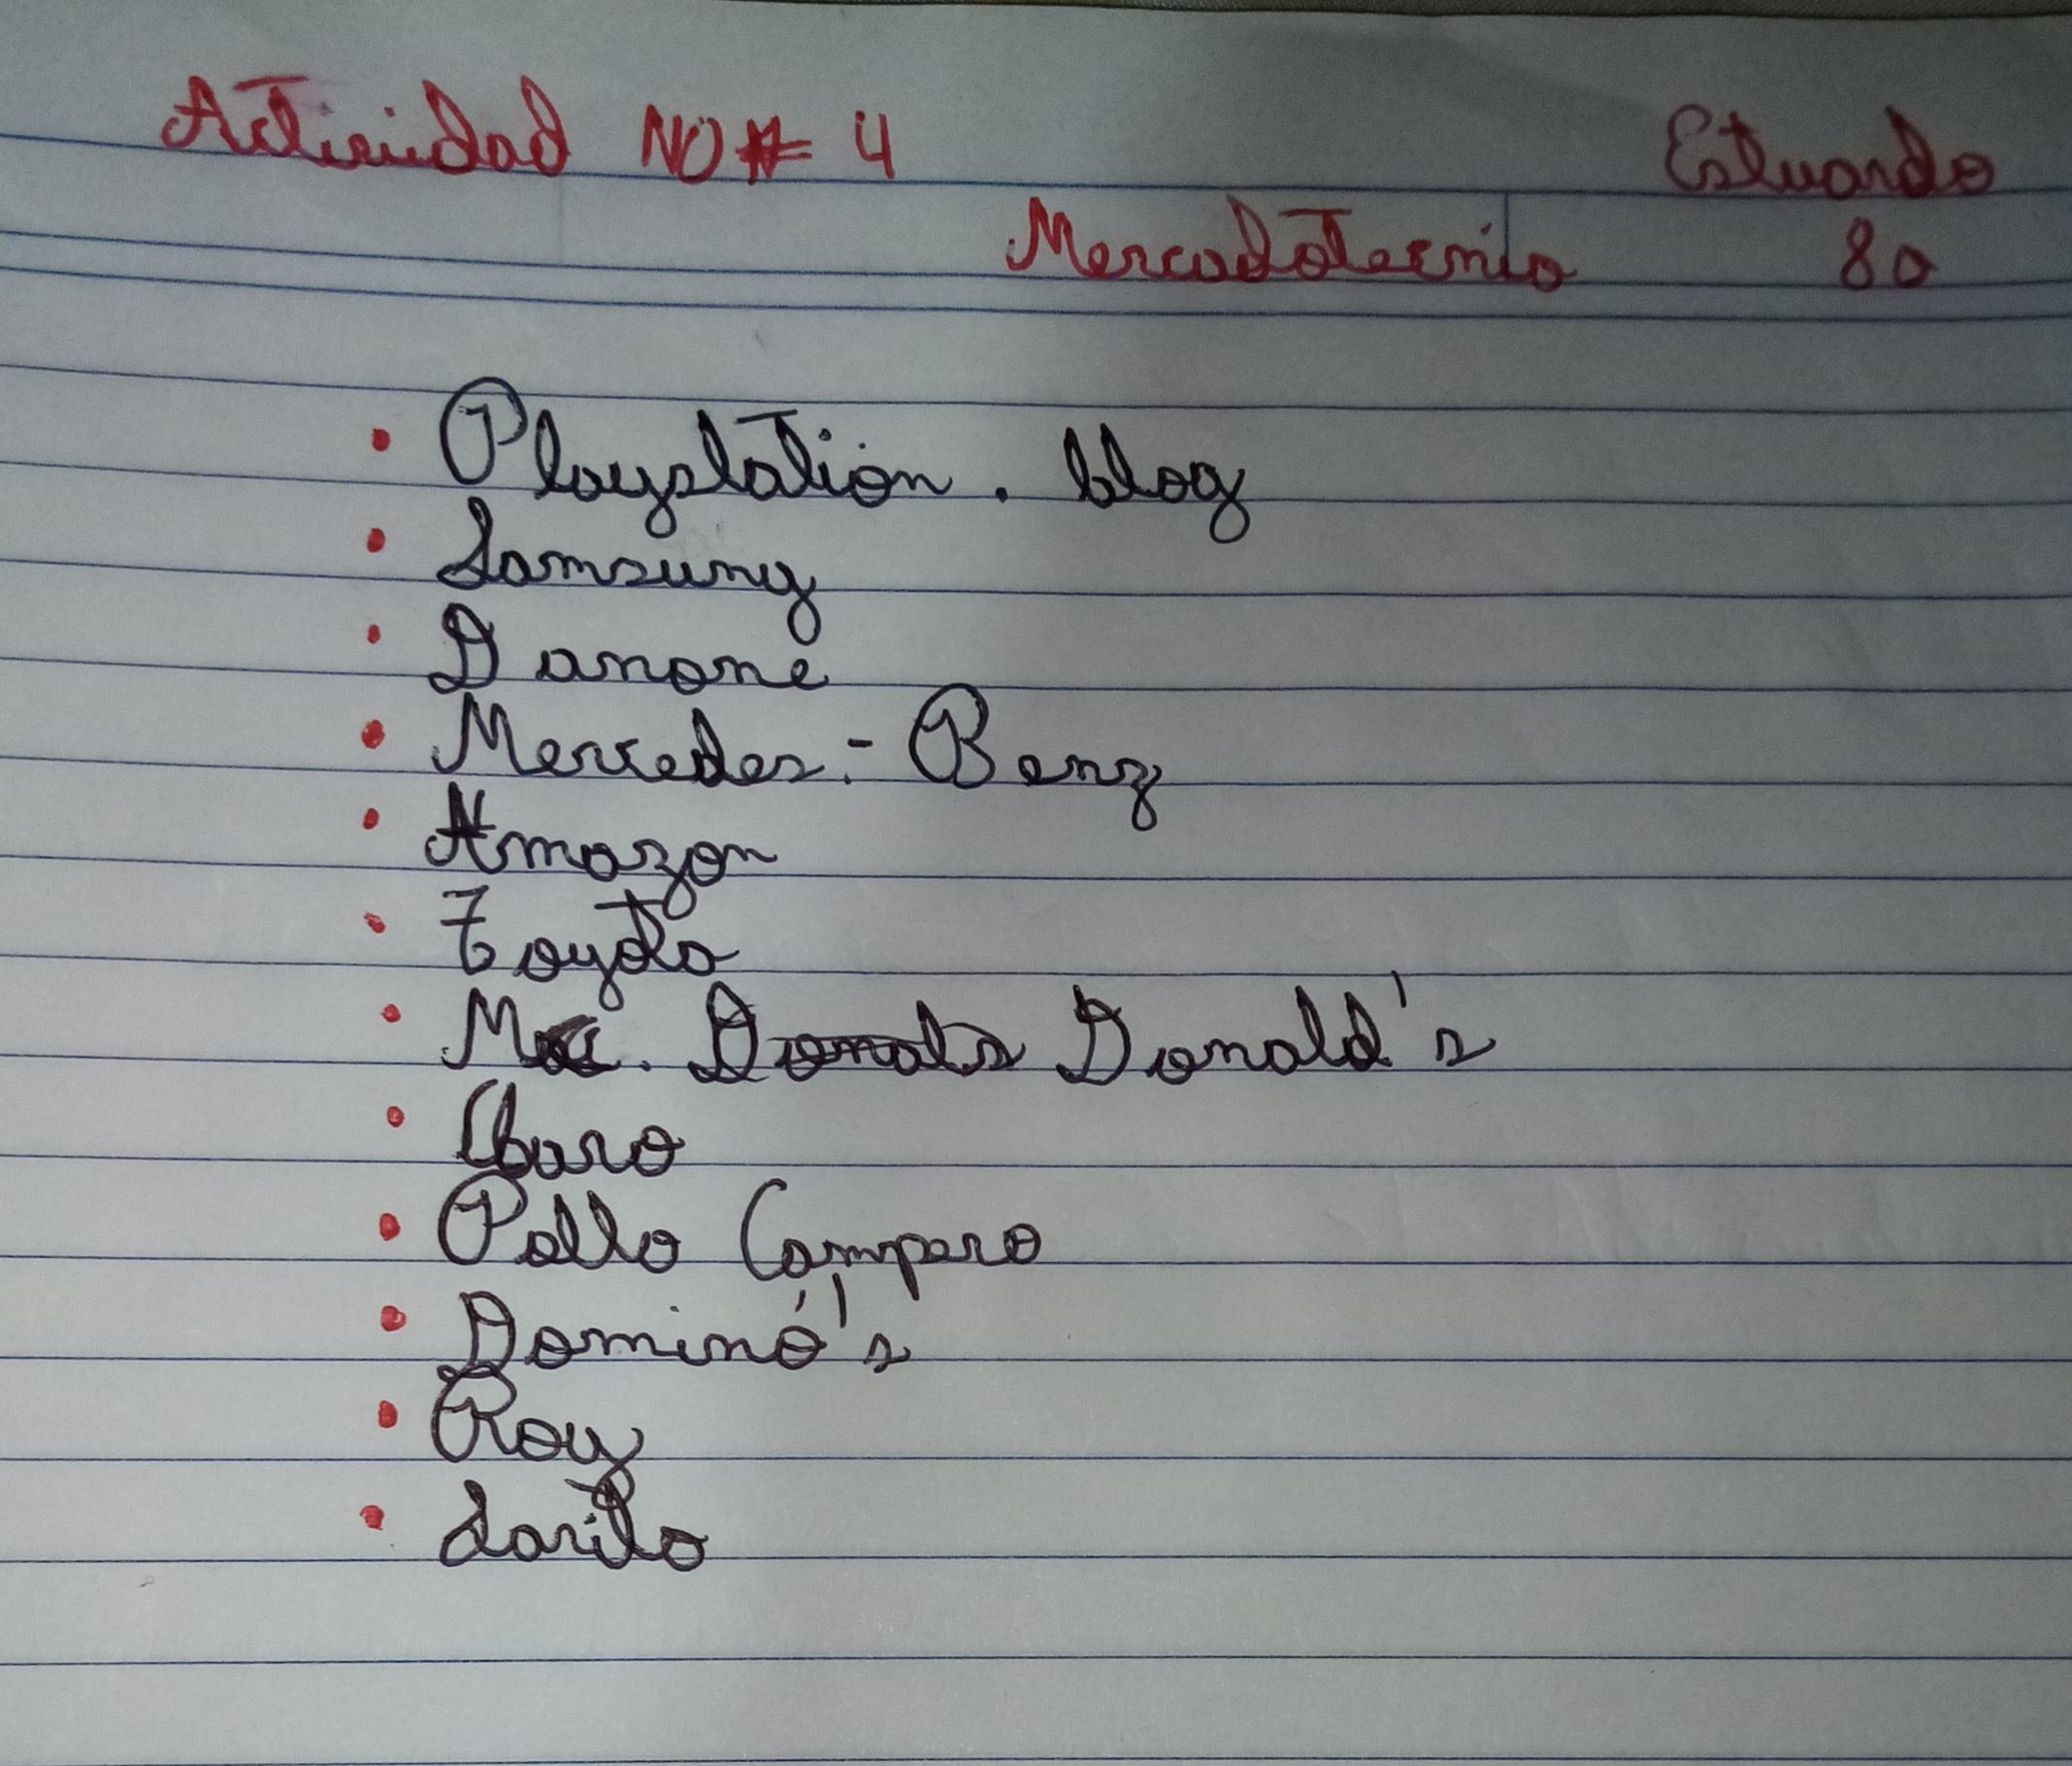 Actividad NO# 4 Estuardo
Mercadotecnia 80
• Playstation . blog
• Samsung
• Danone
• Mercedes.- Benz
• Amazon
• Toyota
• Mc. Donals Donald's
• Claro
• Pollo Campero
• Dominó's
• Roy
• Sarita